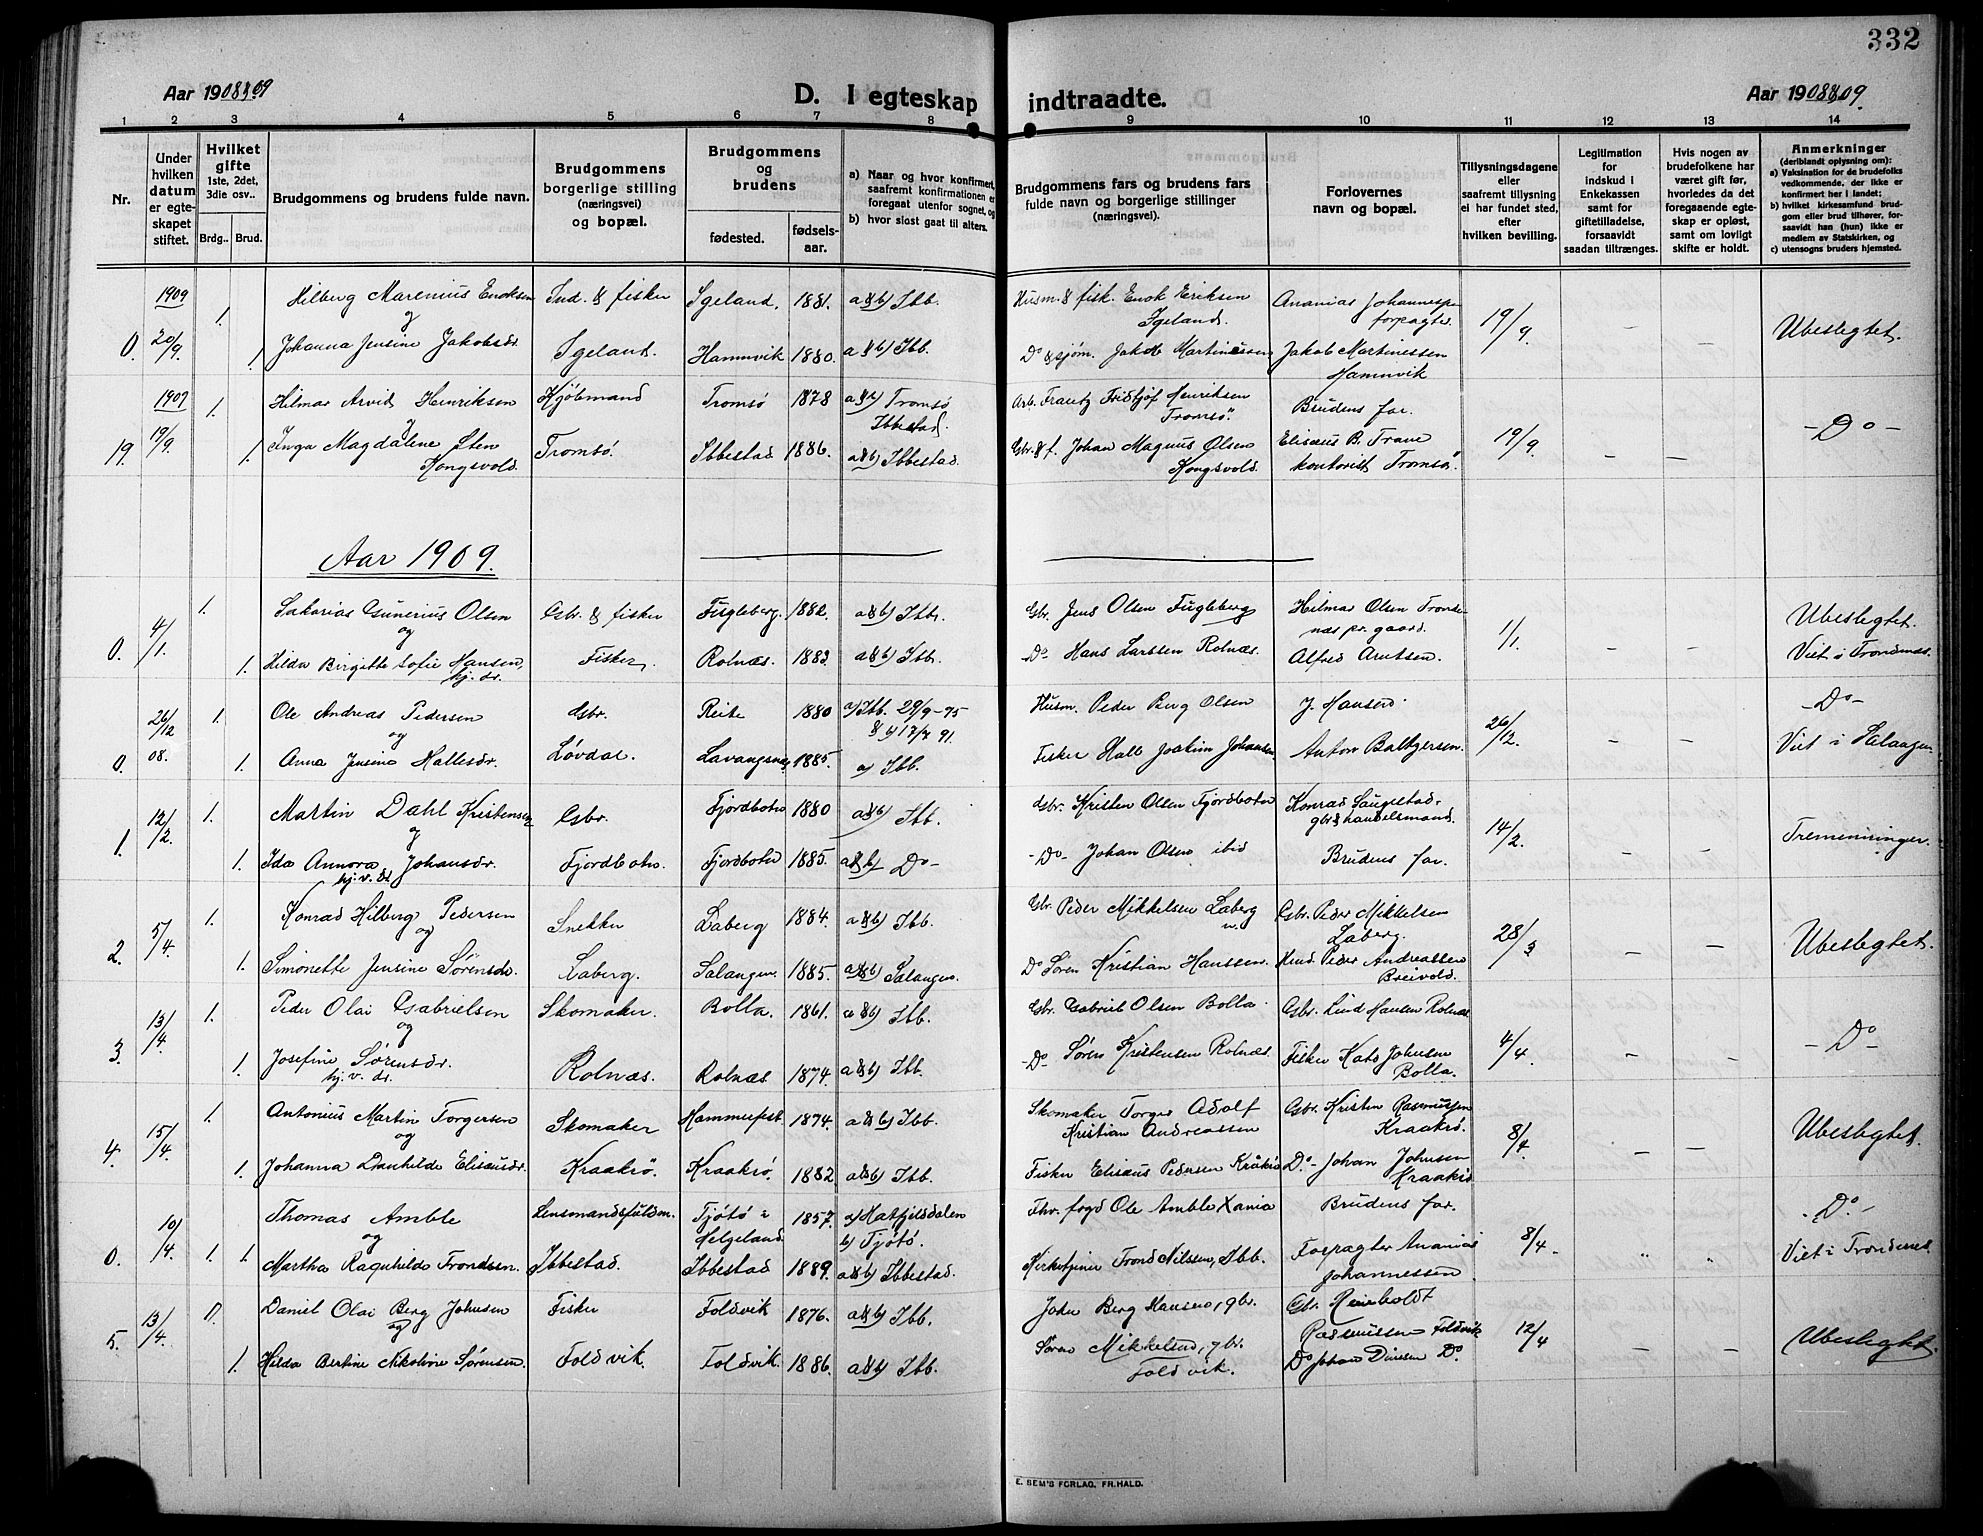 332
Aar 1908&09
D. I egteskap indtraadte.
Aar 1908&09.
1 2 3 4 5 6 7 8 9 10 11 12 13 14
Nr.
Under hvilken datum er egteskapet stiftet.
Hvilket gifte
1ste, 2det, 3die osv..
Brdg.. Brud.
Brudgommens og brudens fulde navn.
Brudgommens borgerlige stilling (næringsvei) og bopæl.
Brudgommens og brudens
fødested. fødsels-aar.
a) Naar og hvor konfirmert, saafremt konfirmationen er foregaat utenfor sognet, og
b) hvor sidst gaat til alters.
Brudgommens fars og brudens fars fulde navn og borgerlige stillinger (næringsvei).
Forlovernes navn og bopæl.
Tillysningsdagene eller saafremt tillysning ei har fundet sted, efter hvilken bevilling.
Legitimation for indskud i Enkekassen samt for giftetilladelse, forsaavidt saadan tiltrænges.
Hvis nogen av brudefolkene har været gift før, hvorledes da det foregaaende egteskap er opløst, samt om lovligt skifte er holdt.
Anmerkninger
(deriblandt oplysning om):
a) Vaksination for de brudefolks vedkommende, der ikke er konfirmert her i landet;
b) hvilket kirkesamfund brudgom eller brud tilhører, forsaavidt han (hun) ikke er medlem av Statskirken, og
c) utensogns bruders hjemsted.
1909
Hilberg Marenius Enoksen Ind. & fisker Igeland. 1881. a&b) Ibb. Husm. & fisk. Enok Eriksen Ananias Johannessen
1. og Igeland. forpagter. 19/9. Ubeslegtet.
0. 20/9. 1. Johanna Jensine Jakobsdr. Igeland. Hamnvik 1880. a&b) Ibb. Do & sjøm. Jakob Martinussen Jakob Martinessen
Hamnvik
1907
1. Hilmar Arvid Henriksen Kjøbmand Tromsø 1878 a&b) Tromsø Arb. Frantz Fridtjof Henriksen Brudens far.
og Ibbestad. Tromsø. - Do -
19. 19/9. 1. Inga Magdalene Sten Tromsø. Ibbestad 1886. a&b) Ibbestad. Gbr. & f. Johan Magnus Olsen Elisæus B. Trane 19/9.
Kongsvold. Kongsvold. kontorist Tromsø.
Aar 1909.
1. Sakarias Gunerius Olsen Gbr. & fisker Fugleberg. 1882. a&b) Ibb. Gbr. Jens Olsen Fugleberg Hilmar Olsen Tronde- Ubeslegtet.
0. 4/1. og nes pr. gaard. 1/1.
1. Hilda Birgitte Sofie Hansen, Fisker. Rolnæs. 1883. a&b) Ibb. Do Hans Larssen Rolnæs. Alfred Arntsen. Viet i Trondenæs.
hj. dr.
26/12 1. Ole Andreas Pedersen Gbr. Reite 1880 a) Ibb. 29/9-95 Husm. Peder Berg Olsen J. Hansen - Do -
og
0. 08. 1. Anna Jensine Hallesdr. Løvdal. Lavangsnes 1885. a) Ibb. Fisker Hall Joakim Johansen Anton Baltzersen. 26/12. Viet i Salangen
1. Martin Dahl Kristensen Gbr. Fjordbotn 1880 a&b) Ibb. Gbr. Kristen Olsen Fjordbotn Konrad Saugestad.
1. 12/2. og gbr & handelsmand. 14/2. Tremenninger.
1. Ida Annora Johansdr. Fjordbotn. Fjordbotn 1885. a&b) Do - - Do - Johan Olsen ibid Brudens far.
hj. v. dr
1. Konrad Hilberg Pedersen Snekker Laberg 1884. a&b) Ibb. Gbr. Peder Mikkelsen Laberg Gbr. Peder Mikkelsen
2. 5/4. og Laberg. 28/3 Ubeslegtet.
1. Simonette Jensine Sørensdr. Laberg. Salangen. 1885. a&b) Salangen. Do Søren Kristian Hanssen. Hmd. Peder Andreassen
Breivold.
1. Peder Olai Gabrielsen Skomaker. Bolla. 1861. a&b) Ibb. Gbr. Gabriel Olsen Bolla. Gbr. Lind Hansen Rolnæs
3. 13/4. og 4/4. - Do -
1. Josefine Sørensdr. Rolnæs. Rolnæs 1874. a&b) Ibb. - Do Søren Kristensen Rolnæs. Fisker Kato Johnsen
hj. v. dr. Bolla.
1. Antonius Martin Torgersen Skomaker Hammerfest 1874. a&b) Ibb. Skomaker Torger Adolf Gbr. Kristen Rasmussen
4. 15/4. og Kristian Andreassen Kraakrø. 8/4. Ubeslegtet.
1. Johanna Danhilde Elisæusdr. Kraakrö. Kraakrø. 1882 a&b) Ibb. Fisker Elisæus Pedersen Kråkrø Do - Johan Johnsen
Kraakrø
Thomas Amble Lensmandsfuldm. Tjøtø i 1857. a) Hatfjelsdalen Fhv. fogd Ole Amble Xania Brudens far. - Do -
10/4. og Helgeland. b) Tjøtø. 8/4.
0. 1. 1. Martha Ragnhilda Trondsen. Ibbestad. Ibbestad 1889. a&b) Ibbestad. Kirketjener Trond Nilssen, Ibb. Forpagter Ananias Viet i Trondenes.
Johannessen
Daniel Olai Berg Johnsen Fisker Foldvik 1876. a&b) Ibb. John Berg Hansen, gbr. Gbr. Reinholdt
5. 13/4. og Rasmussen Foldvik 12/4 Ubeslegtet.
1. Hilda Bertine Nikoline Sørensen. Foldvik. Foldvik. 1886. a&b) Ibb. Søren Mikkelsen, gbr. Do Johan Do.
Foldvik.
E. SEM'S FORLAG, FR.HALD.